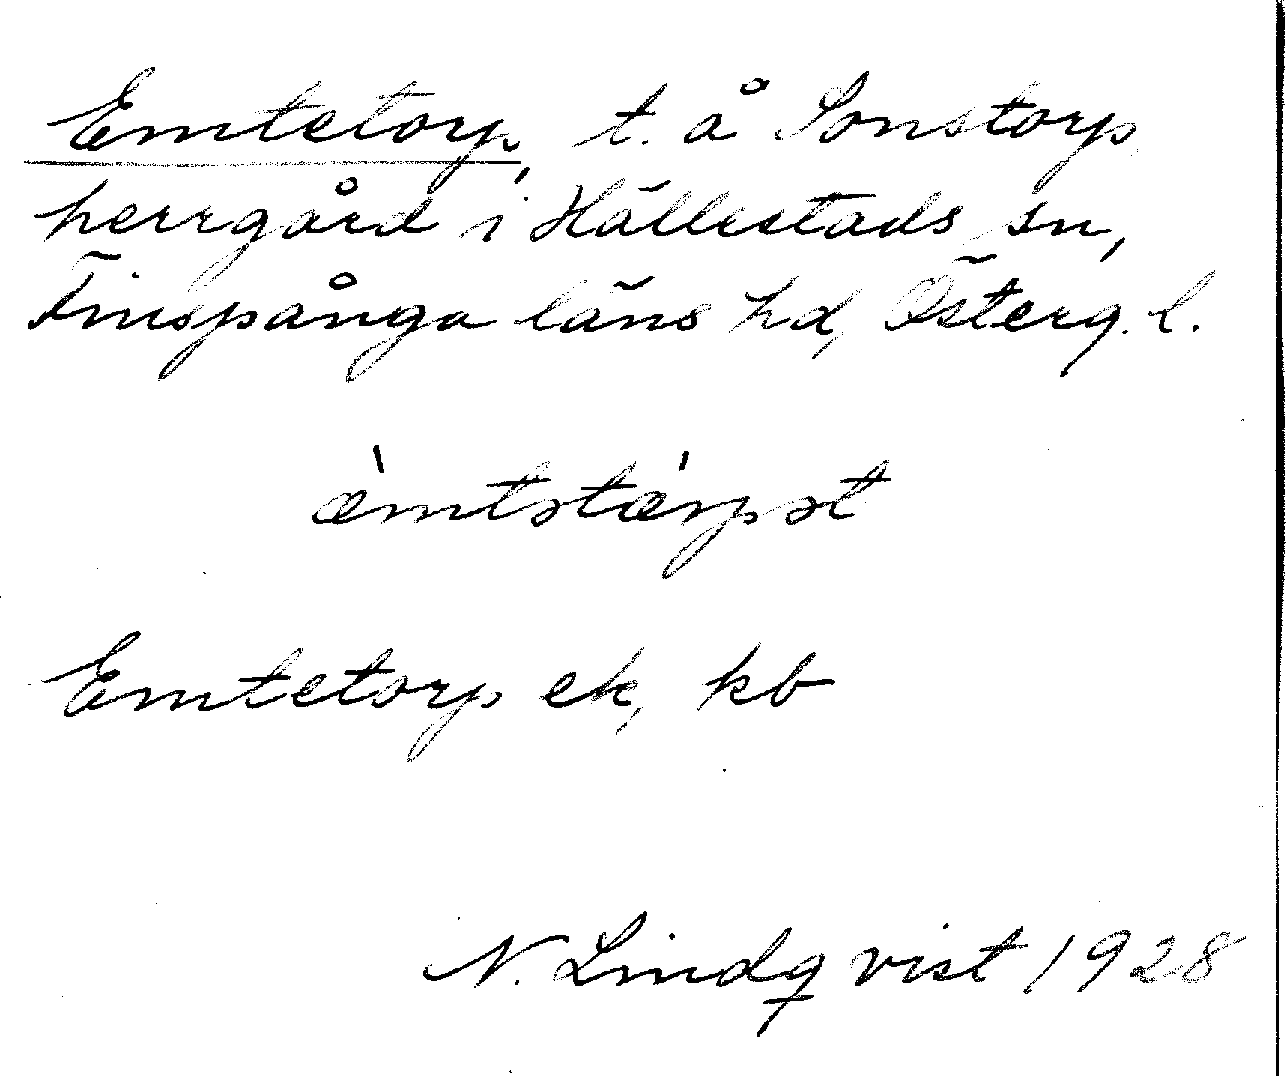 Emtetorp, t. å Sonstorp
herrgård i Hällestads sn,
Finspånga läns hd, Österg. l.
æ̀mtətærpət
Emtetorp ek, kb
N. Lindqvist 1928